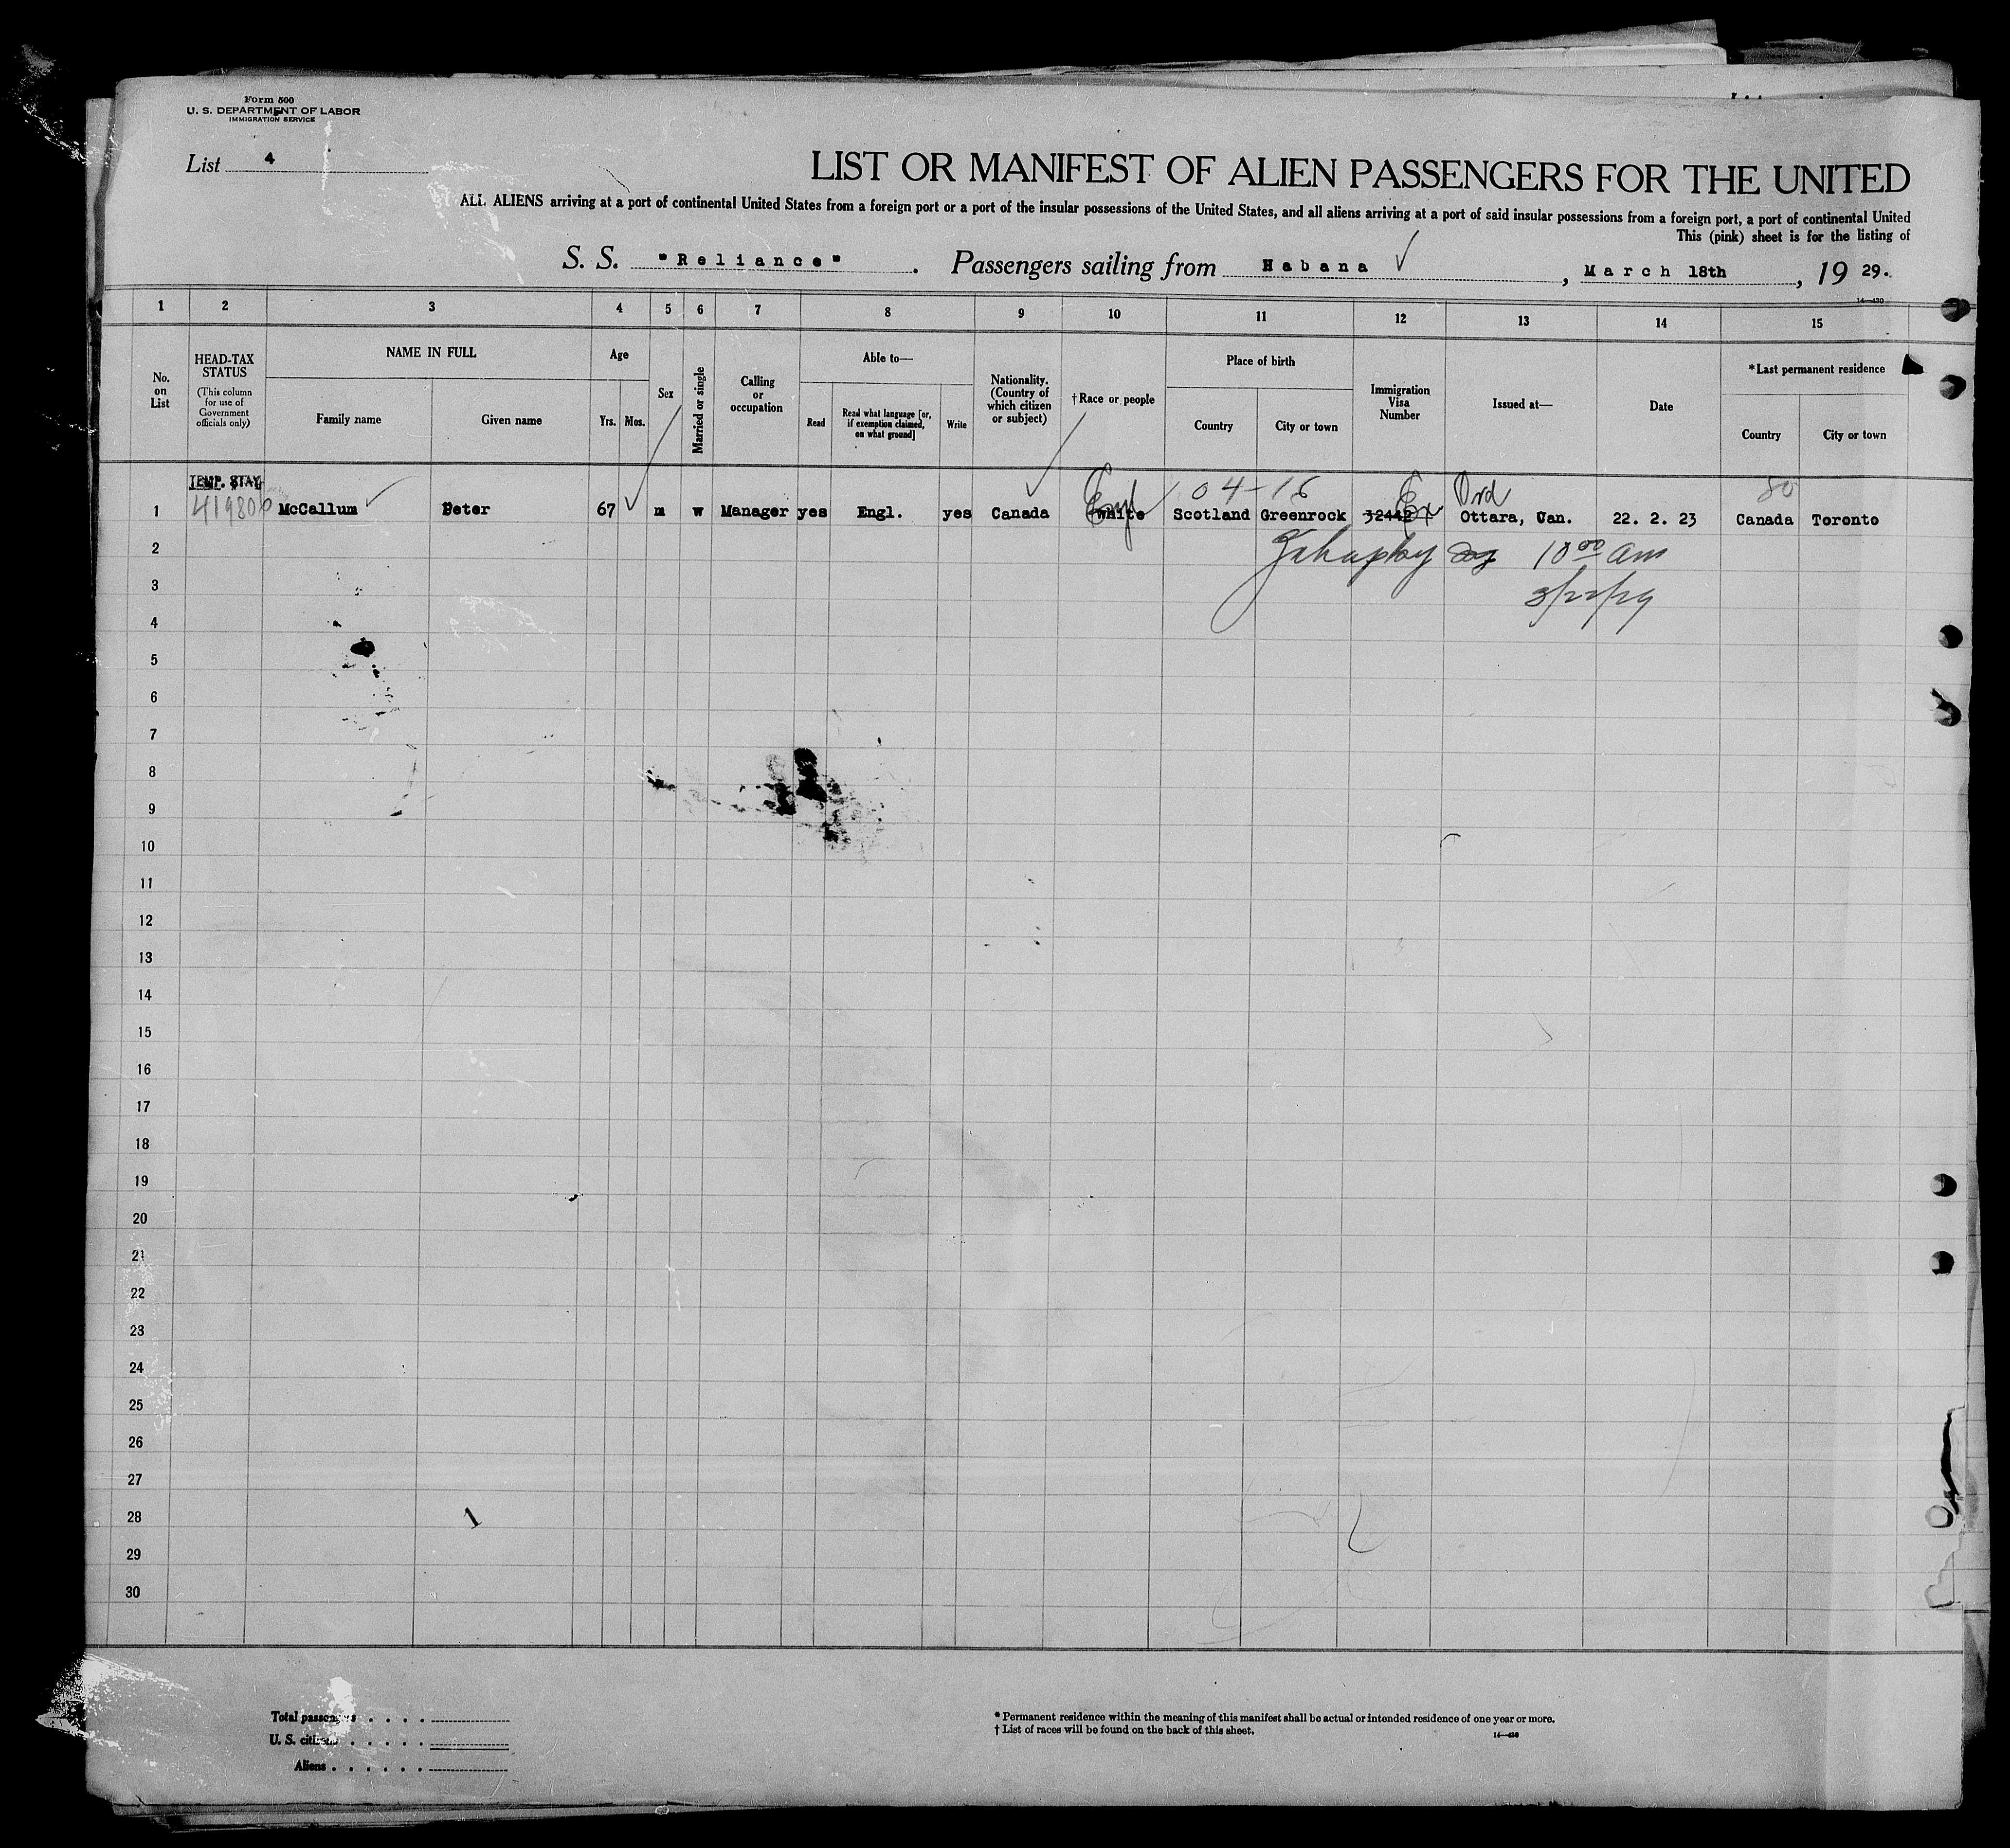 Form 500
U. S. DEPARTMENT OF LABOR
IMMIGRATION SERVICE
List 4
LIST OR MANIFEST OF ALIEN PASSENGERS FOR THE UNITED
ALL ALIENS arriving at a port of continental United States from a foreign port or a port of the insular possessions of the United States, and all aliens arriving at a port of said insular possessions from a foreign port, a port of continental United
This (pink) sheet is for the listing of
S. S. "Reliance". Passengers sailing from Habana, March 18th, 19 29.
14—430
1 2 3 4 5 6 7 8 9 10 11 12 13 14 15
No. on List
HEAD-TAX STATUS
(This column for use of Government officials only)
NAME IN FULL
Family name
Given name
Age
Yrs.
Mos.
Sex
Married or single
Calling or occupation
Able to—
Read
Read what language [or, if exemption claimed, on what ground]
Write
Nationality. (Country of which citizen or subject)
†Race or people
Place of birth
Country
City or town
Immigration Visa Number
Issued at—
Date
*Last permanent residence
Country
City or town
TEMP. STAY 04-16 Ord 80
1 McCallum Peter 67 m w Manager yes Engl. yes Canada white Scotland Greenrock 32442 Ex Ottara, Can. 22. 2. 23 Canada Toronto
2 10 00 am
3 3/22/29
4
5
6
7
8
9
10
11
12
13
14
15
16
17
18
19
20
21
22
23
24
25
26
27
28 1
29
30
Total passengers
U. S. citizens
Aliens
* Permanent residence within the meaning of this manifest shall be actual or intended residence of one year or more.
† List of races will be found on the back of this sheet.
14—430